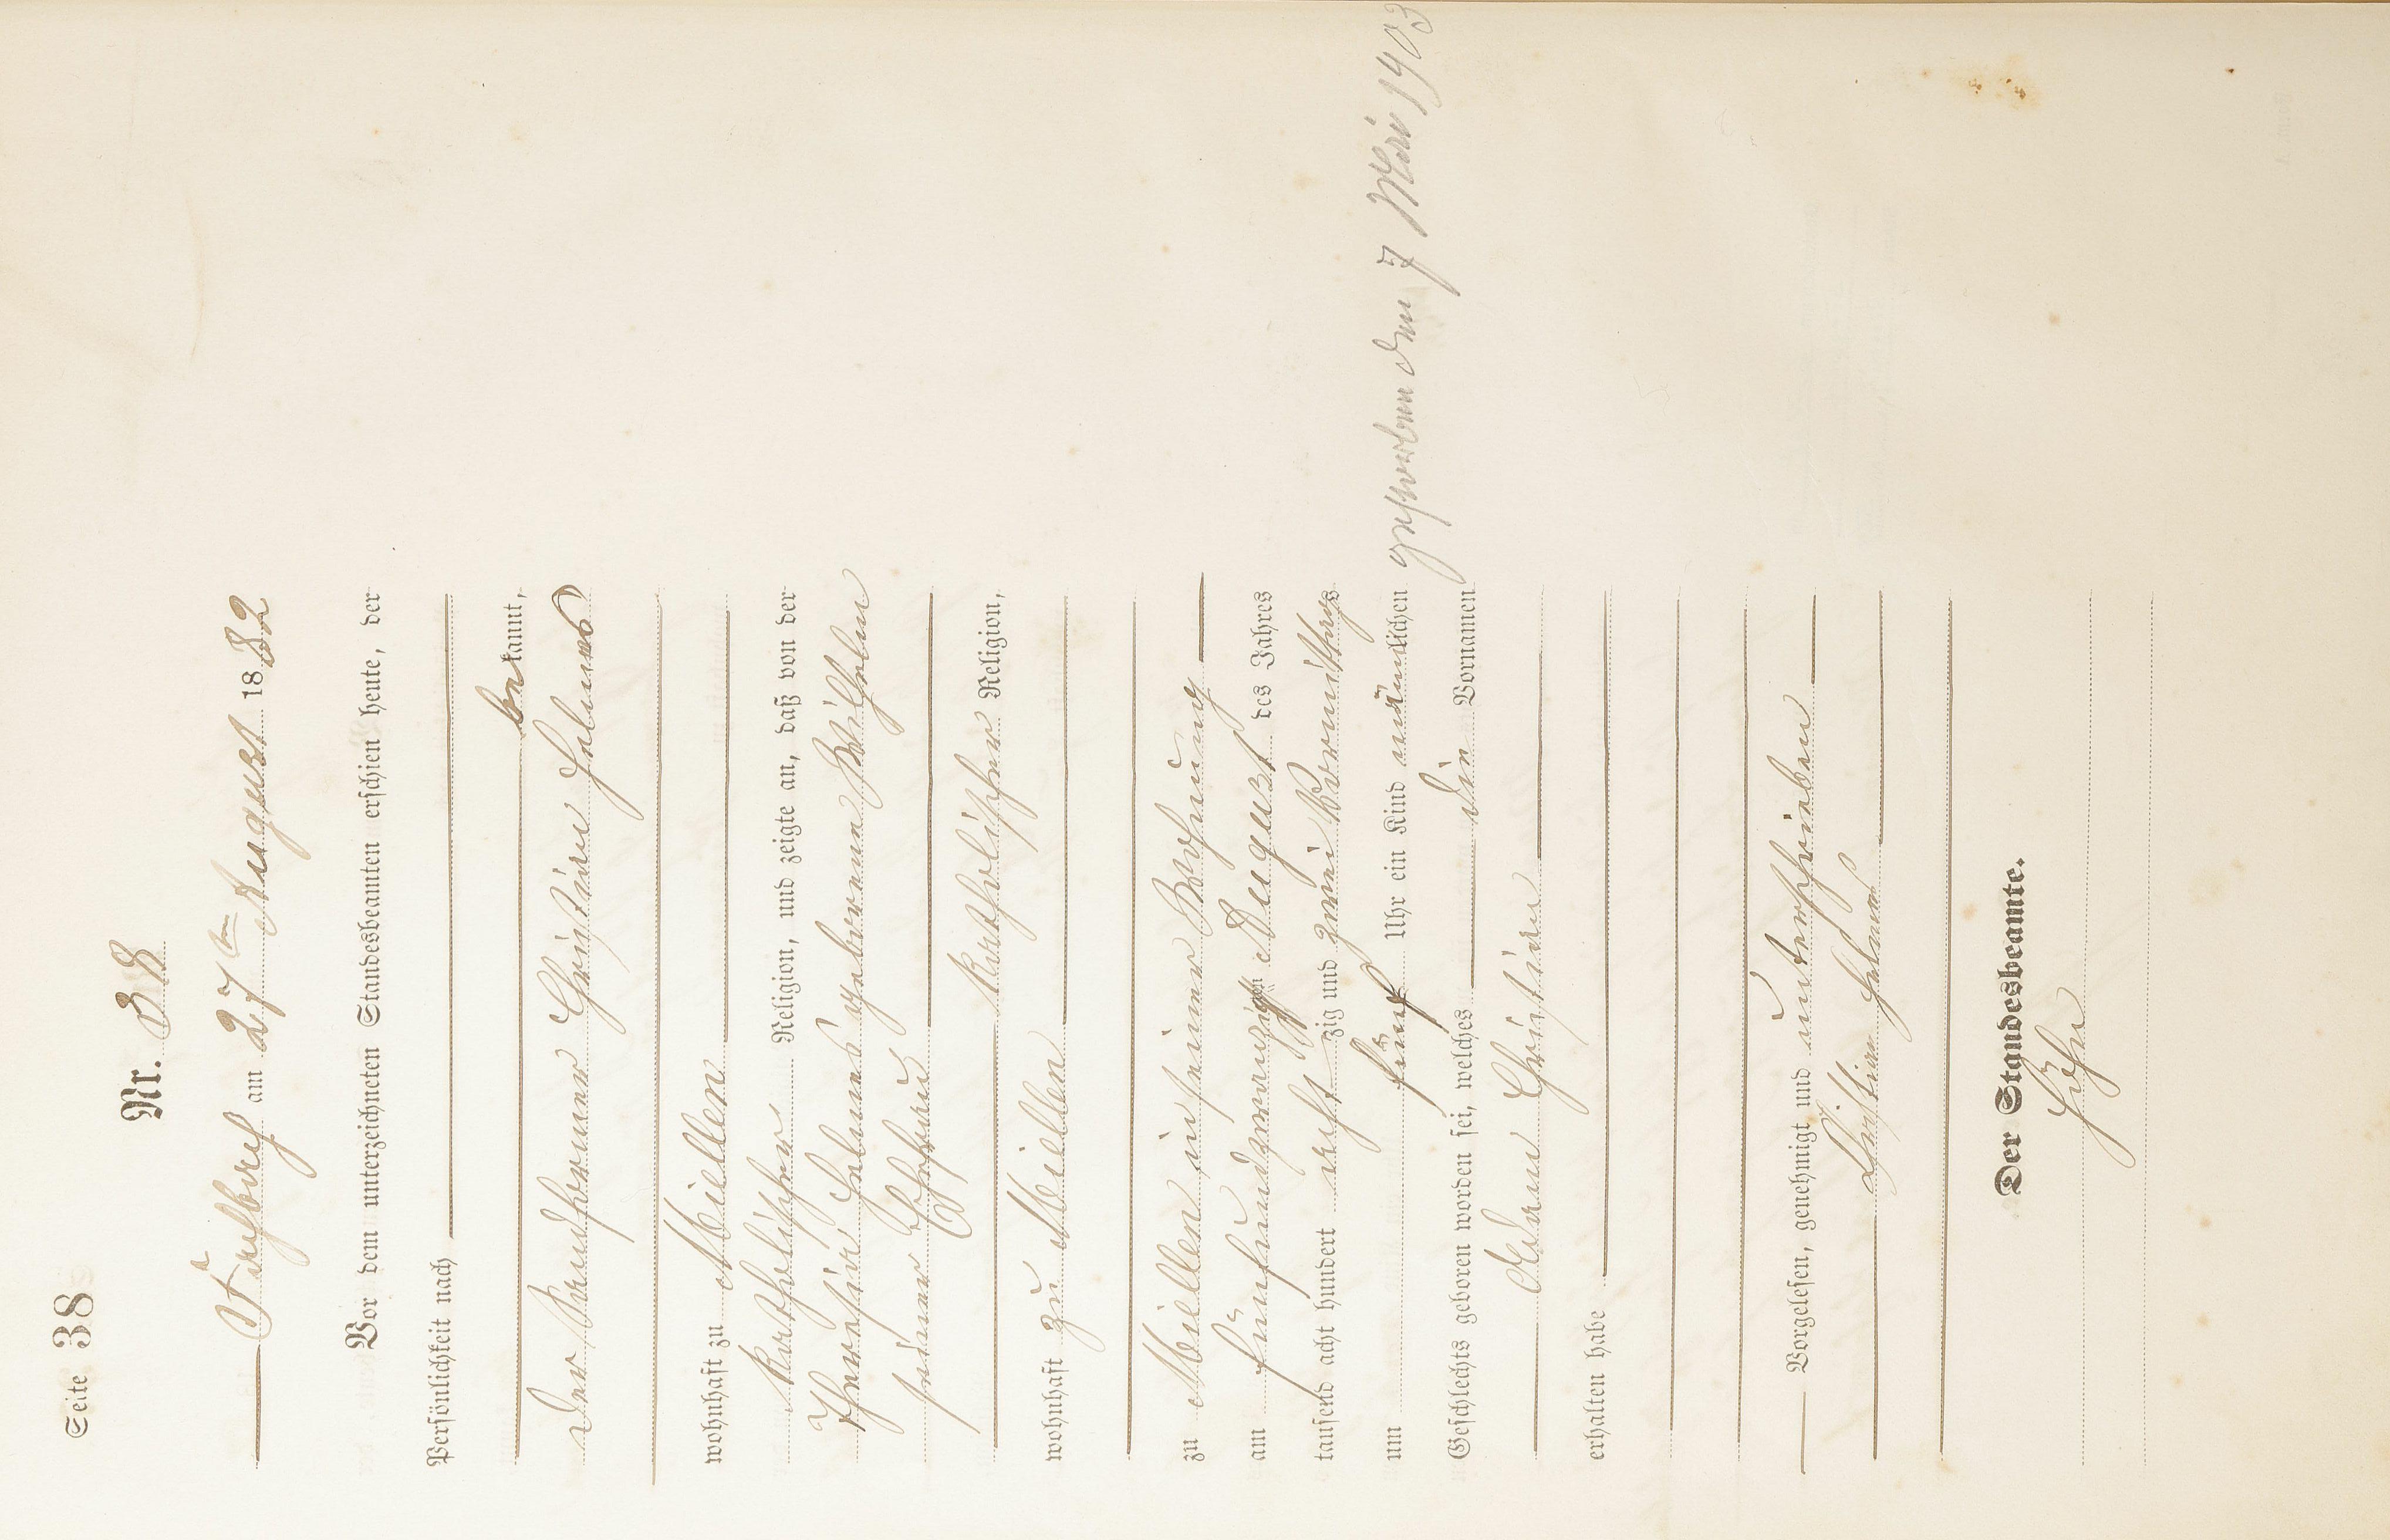 Seite 38
Nr. 38
Fachbach am 27ten August 1882
Vor dem unterzeichneten Standesbeamten erschien heute, der
Persönlichkeit nach
bekannt,
der Christian
wohnhaft zu Miellen
katholischer Religion, und zeigte an, daß von der
Theresia geborenen Wilhelm
seiner Ehefrau
katholischer Religion,
wohnhaft zu Miellen
zu Miellen in seiner Wohnung
am fünfundzwanzigsten August des Jahres
tausend acht hundert acht zig und zwei Vormittags
um fünf Uhr ein Kind männlichen
gestorben den 7 Mai 1903
Geschlechts geboren worden sei, welches die Vornamen
Christian
erhalten habe
Vorgelesen, genehmigt und unterschrieben
Christian
Der Standesbeamte.
Höhn